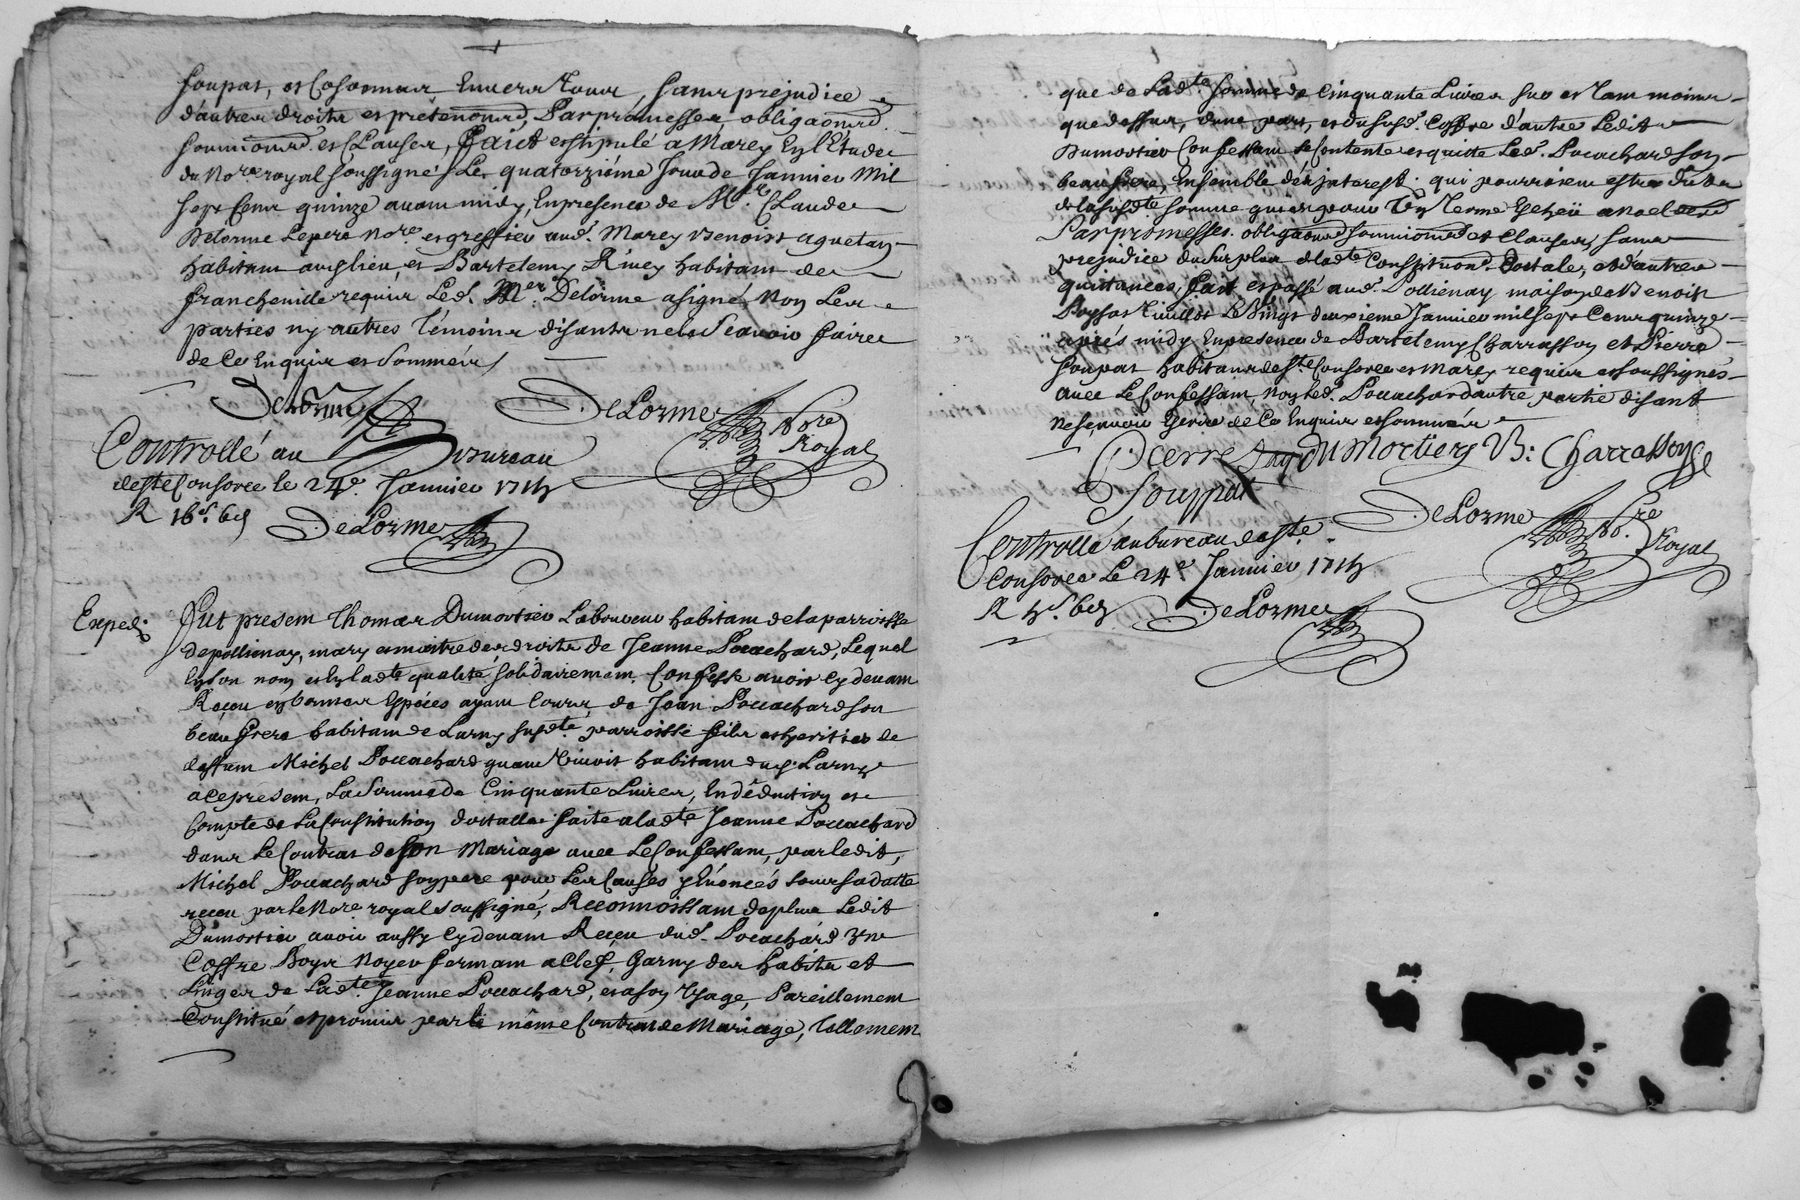 Soupat, et Cosonnier Envers Tous, sans prejudice
d'autres droits et prétentions, Par promesses obligaõns
soumõns et Clauses, faict et stipulé a Marcy En l'Étude
du No.re royal soussigné, Le quatorzième Jour de Janvier Mil
sept Cens quinze avant midy, En presence de M.re Claude
Delorme Le pere No.re et greffier aud. Marcy Benoist
habitant aud lieu, et Bartelemy habitant de
francheville requis Led. M.er Delorme a signé, Non Les
parties ny autres Témoins disants ne le Scavoir faire
de Ce Enquis et Sommés /
Delorme
DeLorme No.re
Royal
Controllé au Bureau
de s.te Consorce le 24.e Janvier 1715
R 16.s 6d
DeLorme
Exped.
Fut present Thomas Dumortier Laboureur habitant de la parroisse
de pollienay, mary et maitre des droits de Jeanne Pocachard, Lequel
En son nom et En lad.te qualité solidairement Confesse avoir Cy devant
Reçeu en bonnes Espéces ayant Cours, de Jean Pocachard son
beau frere habitant de Larny susd.te parroisse fils et heritier de
deffunt Michel Pocachard quand vivoit habitant dud. Larny
a Ce present, La Somme de Cinquante Livres, En déduction et
Compte de La Constitution dottalle faite a lad.te Jeanne Pocachard
dans Le Contrat de son Mariage avec Le Confessant, par ledit
Michel Pocachard son pere pour Les Causes y Enoncés sous sa datte
receu par le No.re royal soussigné, Reconnoissant de plus Ledit
Dumortier avoir aussy Cy devant Reçeu dud. Pocachard Vn
Coffre Boys Noyer fermant a Clef, Garny des habits et
Linges de Lad.te Jeanne Pocachard, et a son Vsage, Pareillement
Constitué et promis par le même Contrat de Mariage, Tellement
que de Lad.te Somme de Cinquante Livres sur et Tant moins
que dessus, d'une part, et du susd. Coffre d'autre Ledit
Dumortier Confessant se Contente et quitte Led. Pocachard son
beau frere, Ensemble des jnterest qui pourroient estre dubs
de la susd.te somme pour Vn Terme Echeü a Noel
Par promesses obligaõns soumõns et Clauses, sans
prejudice du surplus de lad.te Constitution Dottale, et d'autres
quittances, fait et passé aud. Pollienay maison de Benoist
Le Vingt deuxieme Janvier mil sept Cens quinze
aprés midy En presence de Bartelemy Charrasson et Pierre
Soupat habitants de S.te Consorce et Marcy requis et soussignés
avec Le Confessant, Non led. Pocachard autre partie disant
ne scavoir Ecrire de Ce Enquis et sommé
Pierre
Souppat
du Mortiers B: Charrasson
DeLorme No.re
Royal
Controllé au bureau de s.te
Consorce Le 24.e Janvier 1715
R 5.s 6d
DeLorme